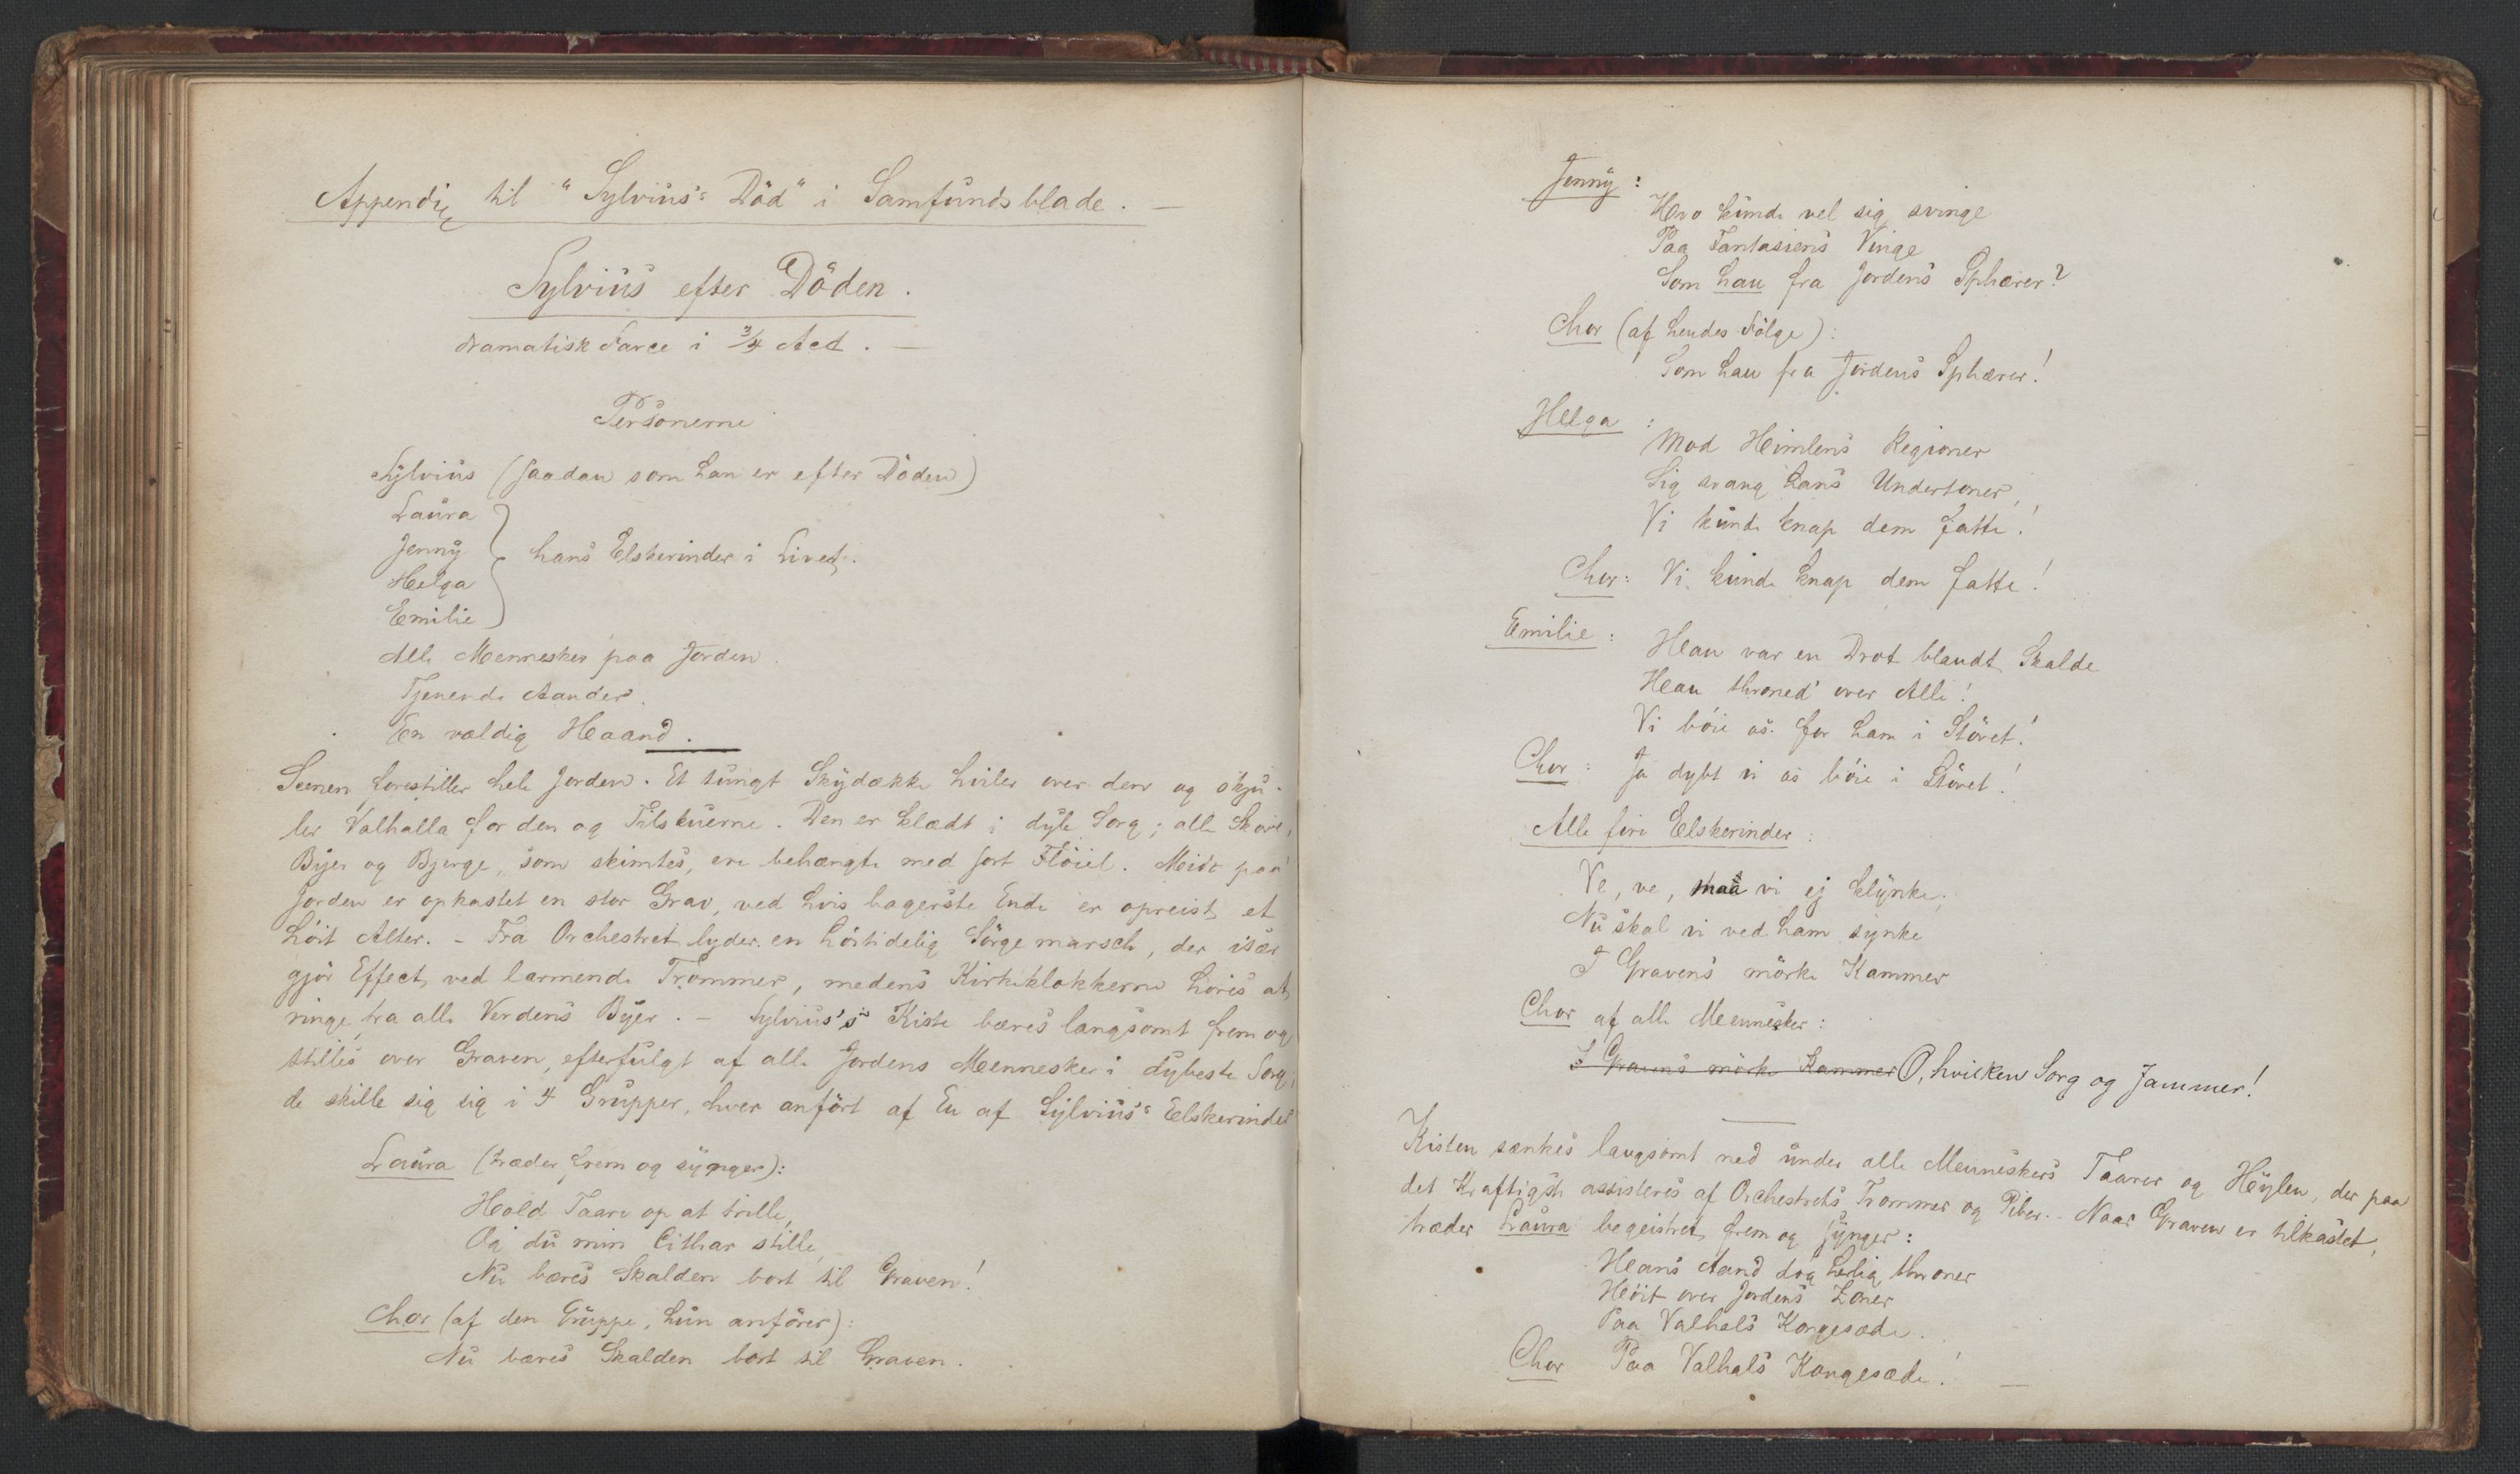 Appendix til "Sylvius's Död" i Samfundsblade. —
Sylvius efter Döden.
dramatisk Farce i 3/4 Act. —
Personerne
Sylvius (saadan som han er efter Döden)
Laura
Jenny
hans Elskerinder i Livet.
Helga
Emilie
Alle Mennesker paa Jorden.
Tjenende Aander.
En vældig Haand.
Scenen forestiller hele Jorden. Et tungt Skydække hviler over den og skju-
ler Valhalla for den og Tilskuerne. Den er klædt i dyb Sorg; alle Skove,
Byer og Bjerge, som skimtes, ere behængte med sort Flöiel. Midt paa
Jorden er opkastet en stor Grav, ved hvis bagerste Ende er opreist et
höit Alter. - Fra Orchestret lyder en höitidelig Sörgemarsch, der især
gjör Effect ved larmende Trommer, medens Kirkeklokkerne höres at
ringe fra alle Verdens Byer. - Sylvius's Kiste bæres langsomt frem og
stilles over Graven, efterfulgt af alle Jordens Mennesker i dybeste Sorg;
de skille sig sig i 4 Grupper, hver anfört af En af Sylvius's Elskerinder
Laura (træder frem og synger):
Hold Taare op at trille,
Og du min Cithar stille,
Nu bæres Skalden bort til Graven!
Chor (af den Gruppe, hun anförer):
Nu bæres Skalden bort til Graven.
Jenny:
Hvo kunde vel sig svinge
Paa Fantasiens Vinge
Som han fra Jordens Sphærer?
Chor (af hendes Fölge):
Som han fra Jordens Sphærer!
Helga:
Mod Himlens Regioner
Sig svang hans Undertoner,
Vi kunde knap dem fatte!
Chor: Vi kunde knap dem fatte!
Emilie:
Han var en Drot blandt Skalde
Han throned' over Alle!
Vi böie os for ham i Stövet!
Chor: Ja dybt vi os böie i Stövet!
Alle fire Elskerinder:
Ve, ve, maa vi ej klynke,
Nu skal vi ved ham synke
I Gravens mörke Kammer
Chor af alle Mennesker:
I Gravens mörke Kammer O, hvilken Sorg og Jammer!
Kisten sænkes langsomt ned under alle Menneskers Taarer og Hÿlen, der paa
det Kraftigste assisteres af Orchestrets Trommer og Piber. - Naar Graven er tilkastet,
træder Laura begeistret frem og synger:
Hans Aand dog herlig throner
Höit over Jordens Zoner
Paa Valhals Kongesæde.
Chor Paa Valhals Kongesæde! —